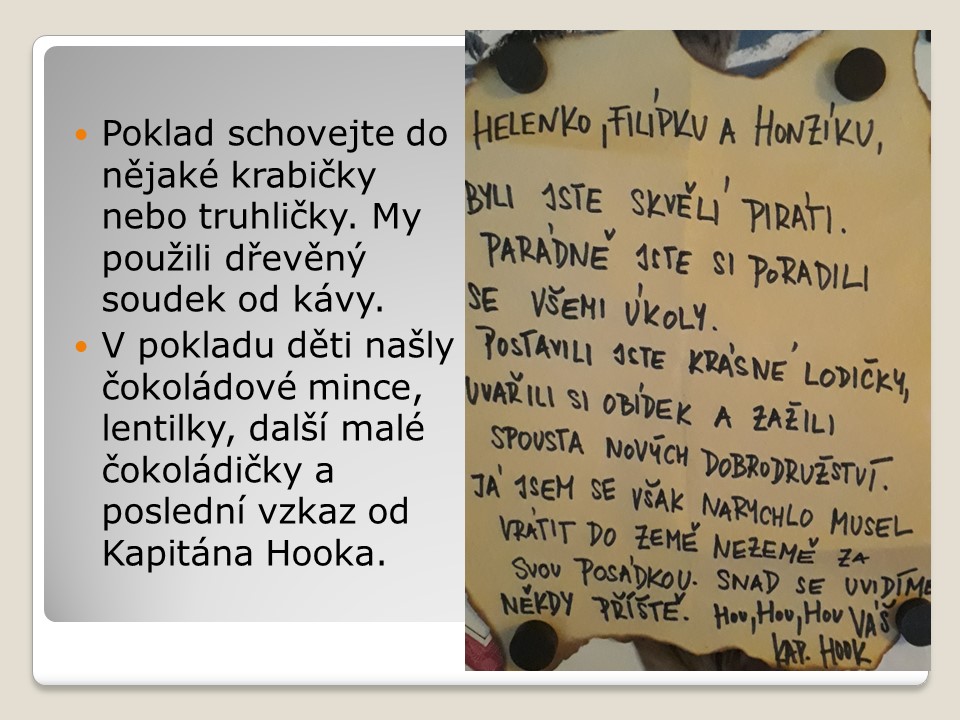 Poklad schovejte do
nějaké krabičky
nebo truhličky. My
použili dřevěný
soudek od kávy.
V pokladu děti našly
čokoládové mince,
lentilky, další malé
čokoládičky a
poslední vzkaz od
Kapitána Hooka.
HELENKO, FILÍPKU A HONZÍKU,
BYLI JSTE SKVĚLÍ PIRÁTI.
PARÁDNĚ JSTE SI PORADILI
SE VŠEMI ÚKOLY.
POSTAVILI JSTE KRÁSNÉ LODIČKY,
UVAŘILI SI OBÍDEK A ZAŽILI
SPOUSTA NOVÝCH DOBRODRUŽSTVÍ.
JÁ JSEM SE VŠAK NARYCHLO MUSEL
VRÁTIT DO ZEMĚ NEZEMĚ ZA
SVOU POSÁDKOU. SNAD SE UVIDÍME
NĚKDY PŘÍŠTĚ. HOU, HOU, HOU VÁŠ
KAP. HOOK